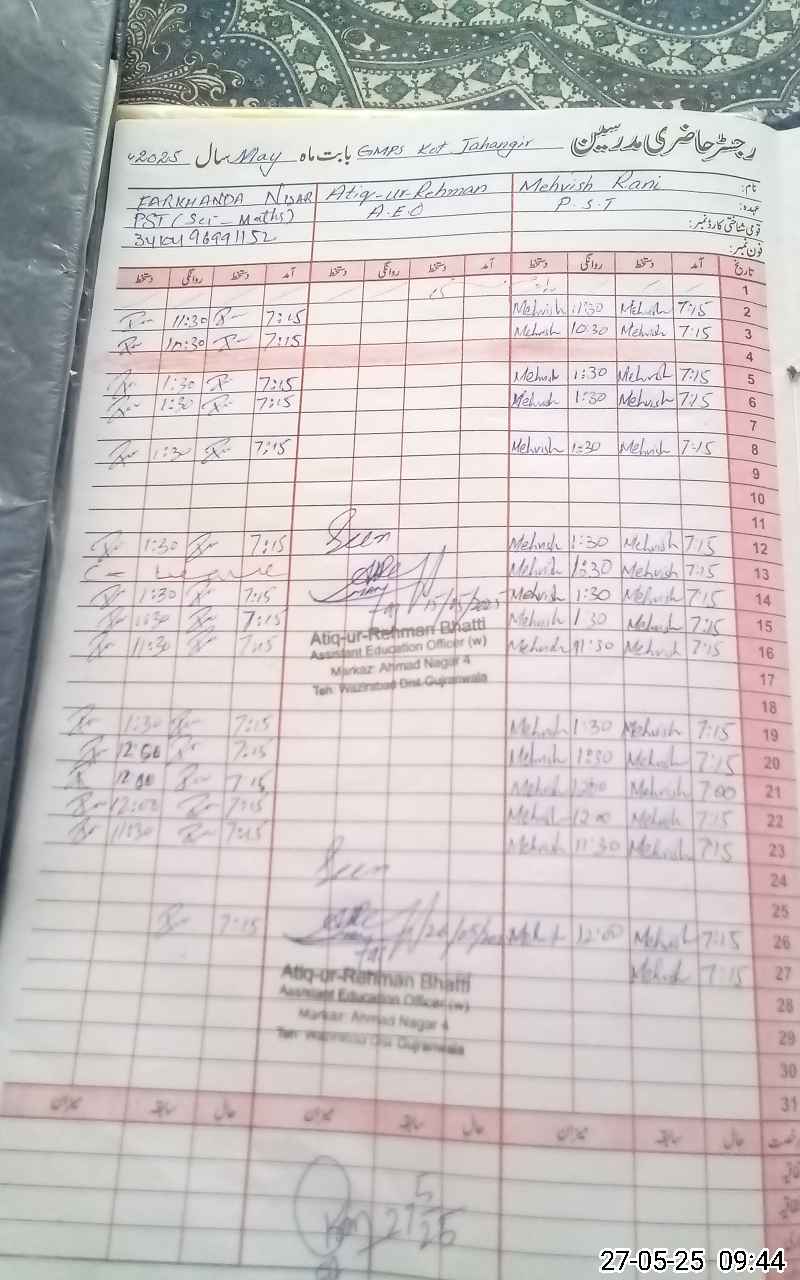 رجسٹر حاضری مدرسین GMPS Kot Jahangir بابت ماہ May سال 2025ء
نام: Mehvish Rani Atiq-ur-Rehman FARKHANDA NISAR
عہدہ: P.S.T A.E.O PST (Sci-Maths)
قومی شناختی کارڈ نمبر:
فون نمبر:
تاریخ آمد دستخط روانگی دستخط آمد دستخط روانگی دستخط آمد دستخط روانگی دستخط
1
2 7:15 Mehvish 11:30 Mehvish 7:15 11:30
3 7:15 Mehvish 10:30 Mehvish 7:15 10:30
4
5 7:15 Mehvish 1:30 Mehvish 7:15 1:30
6 7:15 Mehvish 1:30 Mehvish 7:15 1:30
7
8 7:15 Mehvish 1:30 Mehvish 7:15 1:30
9
10
11
Seen
12 7:15 Mehvish 1:30 Mehvish 7:15 1:30
13 7:15 Mehvish 1:30 Mehvish
14 7:15 Mehvish 1:30 Mehvish 7:15 1:30
15/05/2025
15 7:15 Mehvish 1:30 Mehvish 7:15 1:30
16 7:15 Mehvish 11:30 Mehvish 7:15 11:30
Atiq-ur-Rehman Bhatti
Assistant Education Officer (w)
Markaz: Ahmad Nagar 4
Teh: Wazirabad Dist. Gujranwala
17
18
19 7:15 Mehvish 1:30 Mehvish 7:15 1:30
20 7:15 Mehvish 1:30 Mehvish 7:15 12:00
21 7:00 Mehvish 12:00 Mehvish 7:15 12:00
22 7:15 Mehvish 12:00 Mehvish 7:15 12:00
23 7:15 Mehvish 11:30 Mehvish 7:15 11:30
24
Seen
25
26 7:15 Mehvish 12:00 7:15
27 7:15 Mehvish
Atiq-ur-Rehman Bhatti
Assistant Education Officer (w)
Markaz: Ahmad Nagar 4
Teh: Wazirabad Dist. Gujranwala
28
29
30
31
حال سابقہ میزان حال سابقہ میزان حال سابقہ میزان
27-05-25 09:44